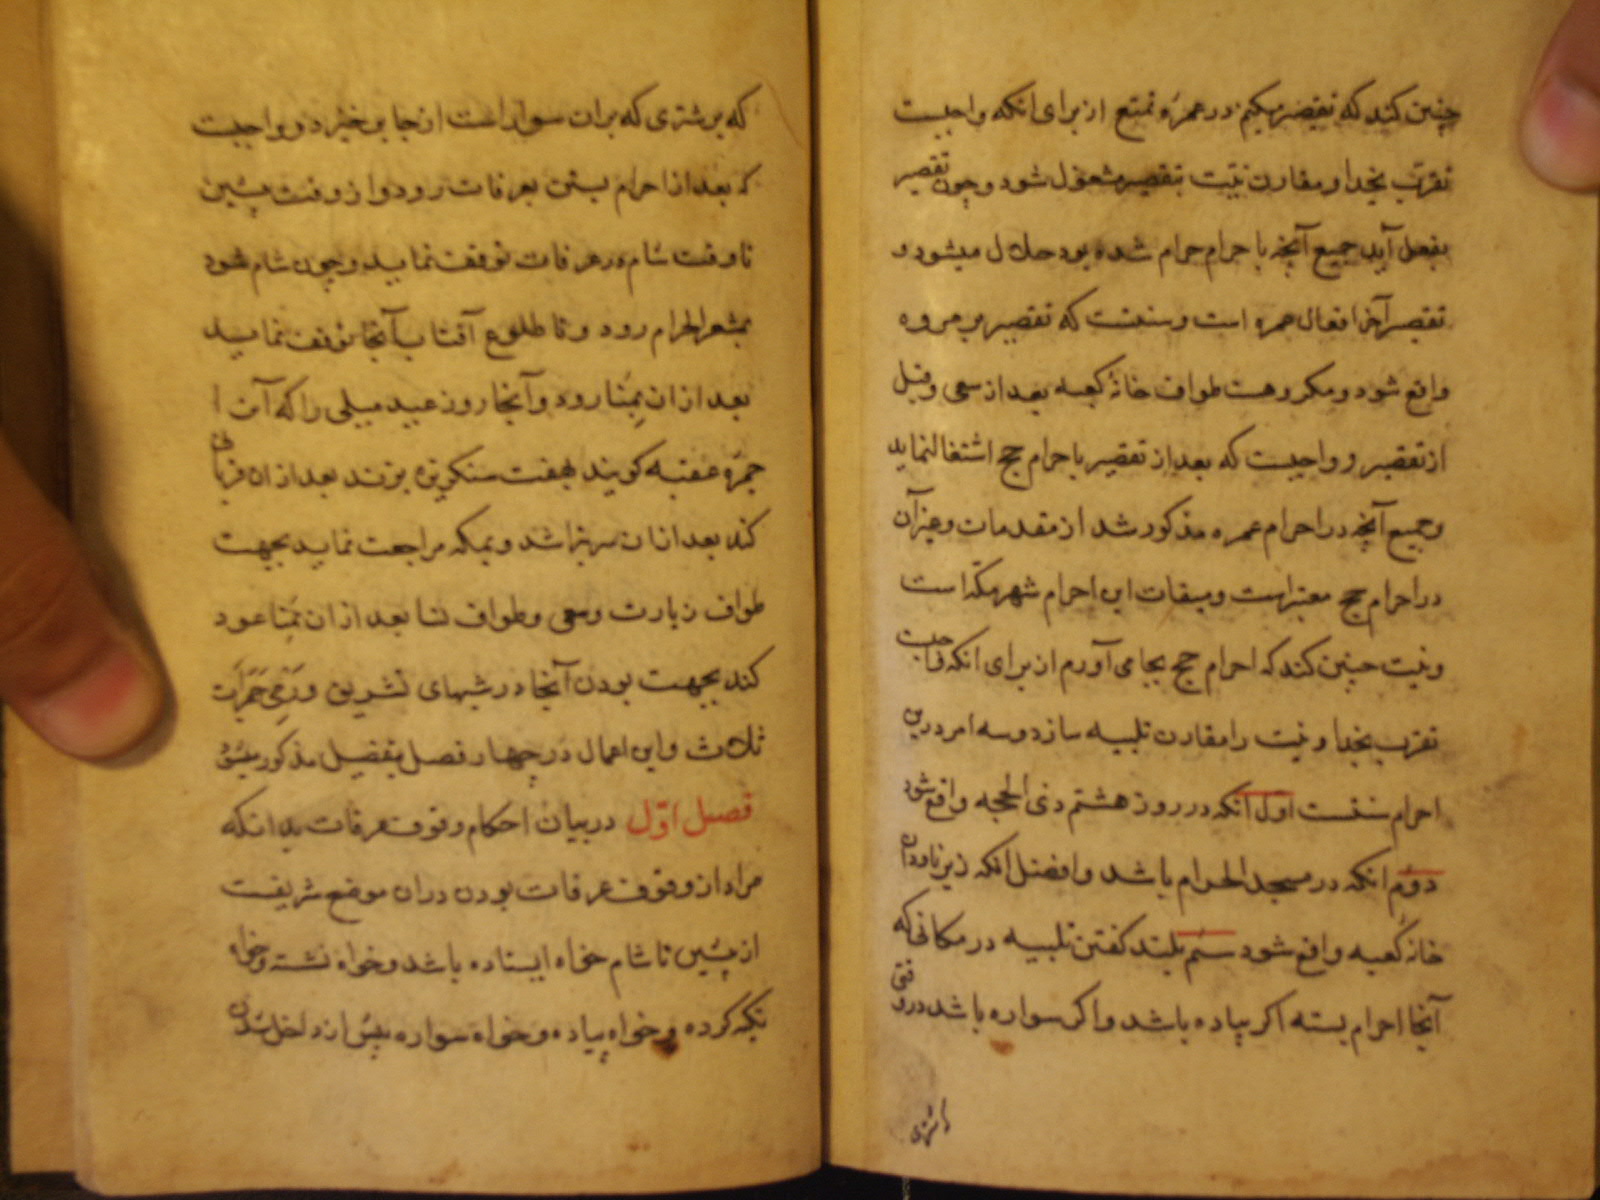 چنین کند که تقصیر میکنم در عمره تمتع از برای انکه واجبست
تقرب بخدا و مقارن نیت بتقصیر مشغول شود و چون تقصیر
بفعل آید جمیع آنچه باحرام حرام شده بود حلال میشود و
تقصیر آخر افعال عمره است و سنتست که تقصیر بر مروه
واقع شود و مکروهست طواف خانهٔ کعبه بعد از سعی و قبل
از تقصیر و واجبست که بعد از تقصیر باحرام حج اشتغال نماید
و جمیع آنچه در احرام عمره مذکور شد از مقدمات و غیر آن
در احرام حج معتبرست و میقات این احرام شهر مکّه است
و نیت چنین کند که احرام حج بجا می آورم از برای انکه واجبست
تقرب بخدا و نیت را مقارن تلبیه سازد و سه امر درین
احرام سنتست اول انکه در روز هشتم ذی الحجه واقع شود
دوّم انکه در مسجد الحرام باشد و افضل انکه زیر ناودان
خانهٔ کعبه واقع شود سیُم بلند کفتن تلبیه در مکانی که
آنجا احرام بسته اکر پیاده باشد و اکر سواره باشد در وقتی
که بر شتری که بران سوارست از جا بر خیزد و واجبست
که بعد از احرام بستن بعرفات رود و از وقت پیشین
تا وقت شام در عرفات توقف نماید و چون شام شود
بمشعر الحرام رود و تا طلوع آفتاب آنجا توقف نماید
بعد از ان بمنا رود و آنجا روز عید میلی را که آن را
جمرهٔ عقبه کویند بهفت سنکریزه بزند بعد از ان قربان
کند بعد ازان سر بتراشد و بمکه مراجعت نماید بجهت
طواف زیارت و سعی و طواف نسا بعد از ان بمنا عود
کند بجهت بودن آنجا در شبهای تشریق و رَمْیِ جَمَرات
ثلاث و این اعمال در چهار فصل بتفصیل مذکور میشود
فصل اوّل در بیان احکام وقوف عرفات بدانکه
مراد از وقوف عرفات بودن دران موضع شریفست
از پیشین تا شام خواه ایستاده باشد و خواه نشسته و خواه
تکیه کرده و خواه پیاده و خواه سواره پیش از داخل شدن